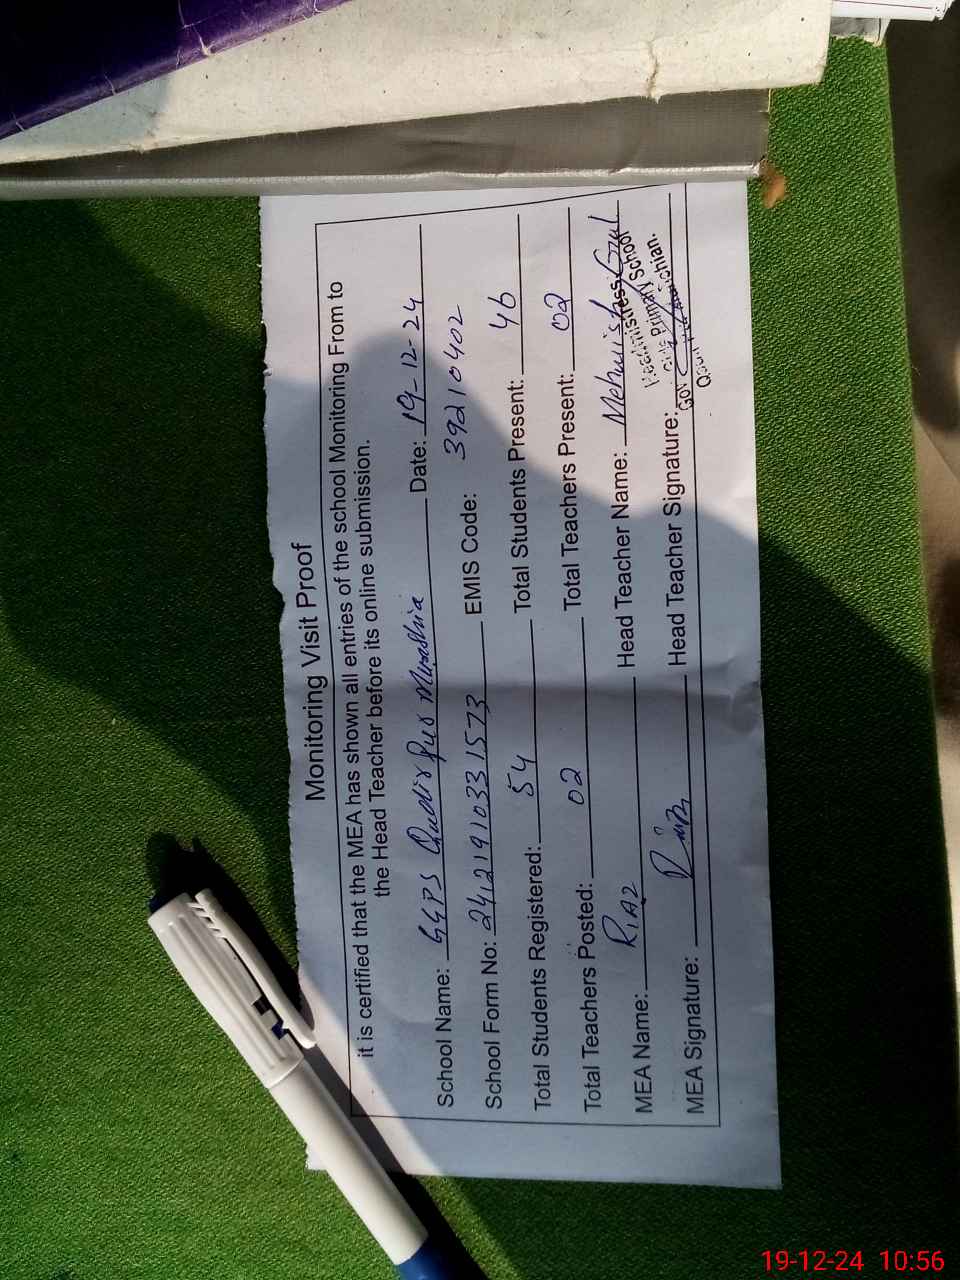 Monitoring Visit Proof
it is certified that the MEA has shown all entries of the school Monitoring From to
the Head Teacher before its online submission.
School Name: GGPS Qadir pur Date: 19-12-24
School Form No: 24121910331573 EMIS Code: 39210402
Total Students Registered: 54 Total Students Present: 46
Total Teachers Posted: 02 Total Teachers Present: 02
MEA Name: RiAZ Head Teacher Name: Mehwish Gul
MEA Signature: Head Teacher Signature:
Headmistress School
Primary
19-12-24 10:56